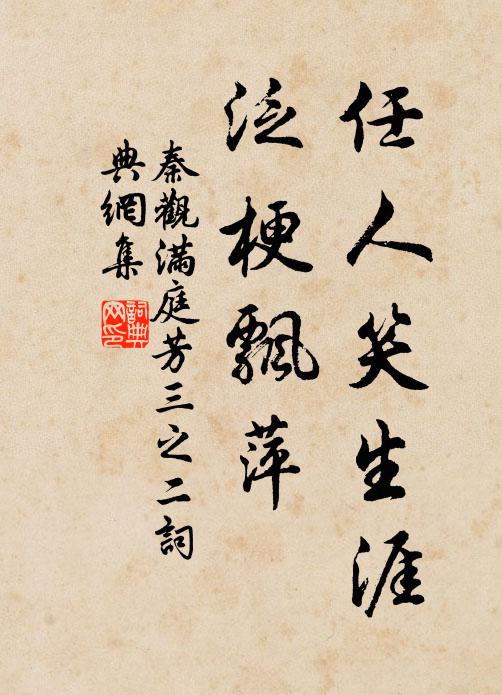 任人笑生涯
泛梗飄萍
秦觀滿庭芳三之二詞
典網集
詞典
网印